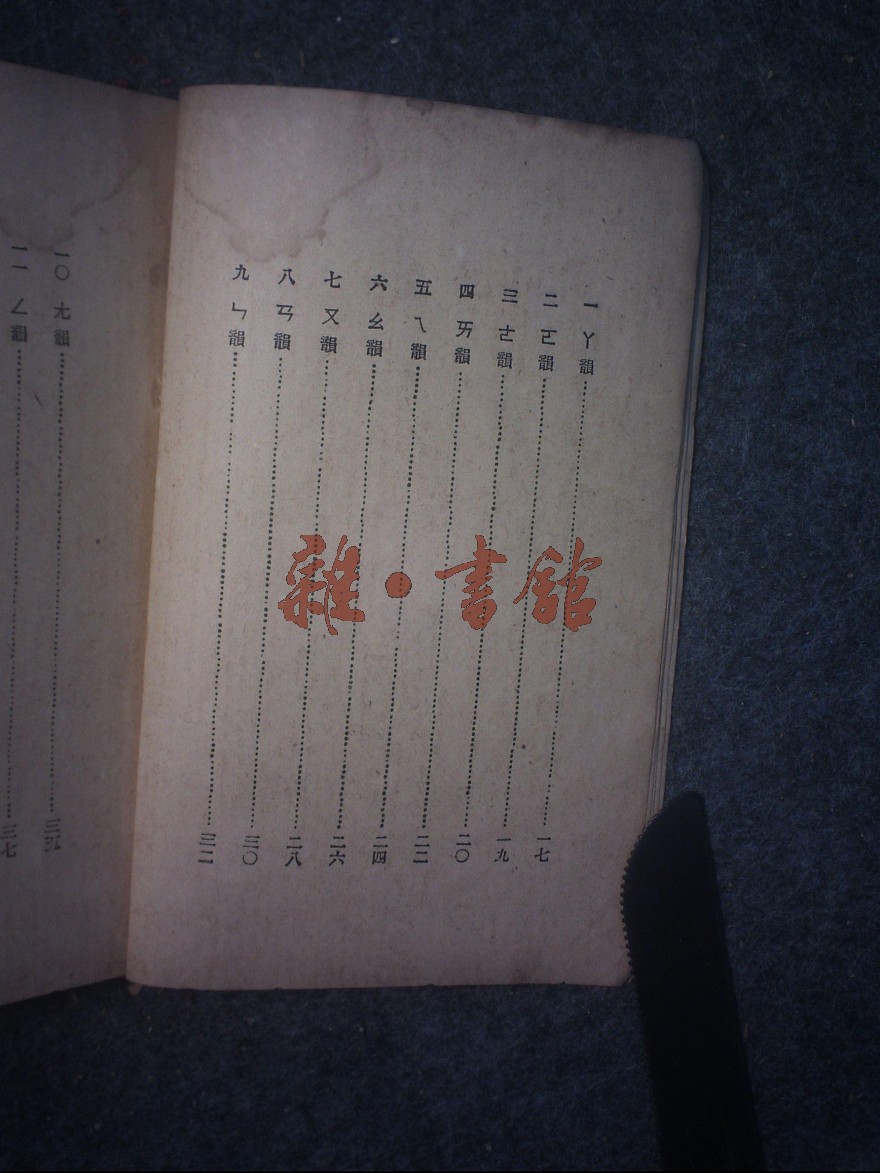 一 ㄚ韻……一七
二 ㄛ韻……一九
三 ㄜ韻……二〇
四 ㄞ韻……二二
五 ㄟ韻……二四
六 ㄠ韻……二六
七 ㄡ韻……二八
八 ㄢ韻……三〇
九 ㄣ韻……三二
一〇 ㄤ韻……三五
一一 ㄥ韻……三七
雜·書館